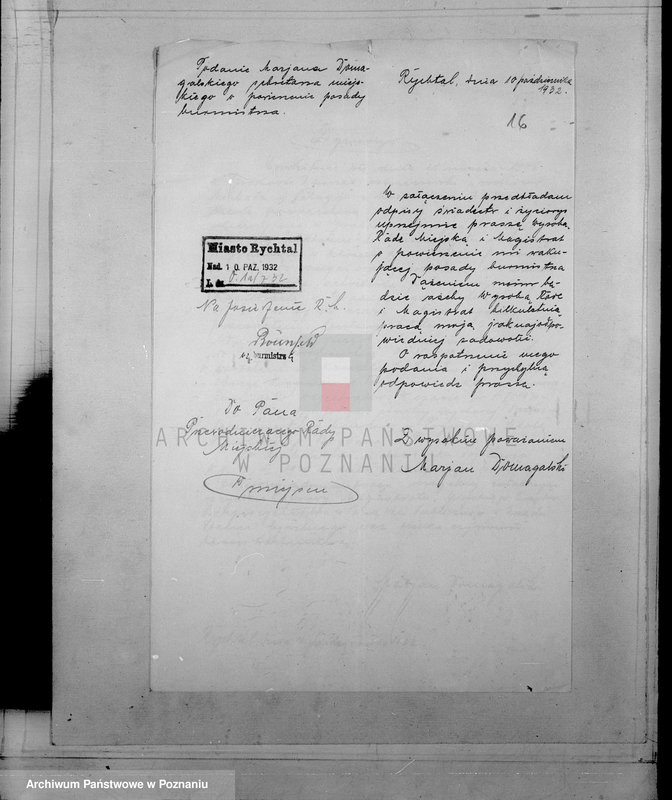 Podanie Marjana Doma-
galskiego sekretarza miej-
skiego o powierzenie posady
burmistrza.
Rychtal, dnia 10 października
1932.
16
W załączeniu przedkładam
odpisy świadectw i życiorys
uprzejmie proszę wysoką
Radę Miejską i Magistrat
o powierzenie mi waku-
jącej posady burmistrza
Dążeniem mojem bę-
dzie ażeby wysoką Radę
i Magistrat kilkuletnią
pracą moją jaknajodpo-
wiedniej zadowolić.
O rozpatrzenie mego
podania i przychylną
odpowiedź proszę.
Miasto Rychtal
Nad. 10. PAZ. 1932
L. dz.
Na posiedzenie R. M.
w z. burmistrz
Do Pana
Przewodniczącego Rady
Miejskiej
w miejscu
Z wysokim poważaniem
Marjan Domagalski
ARCHIWUM PAŃSTWOWE
W POZNANIU
Archiwum Państwowe w Poznaniu